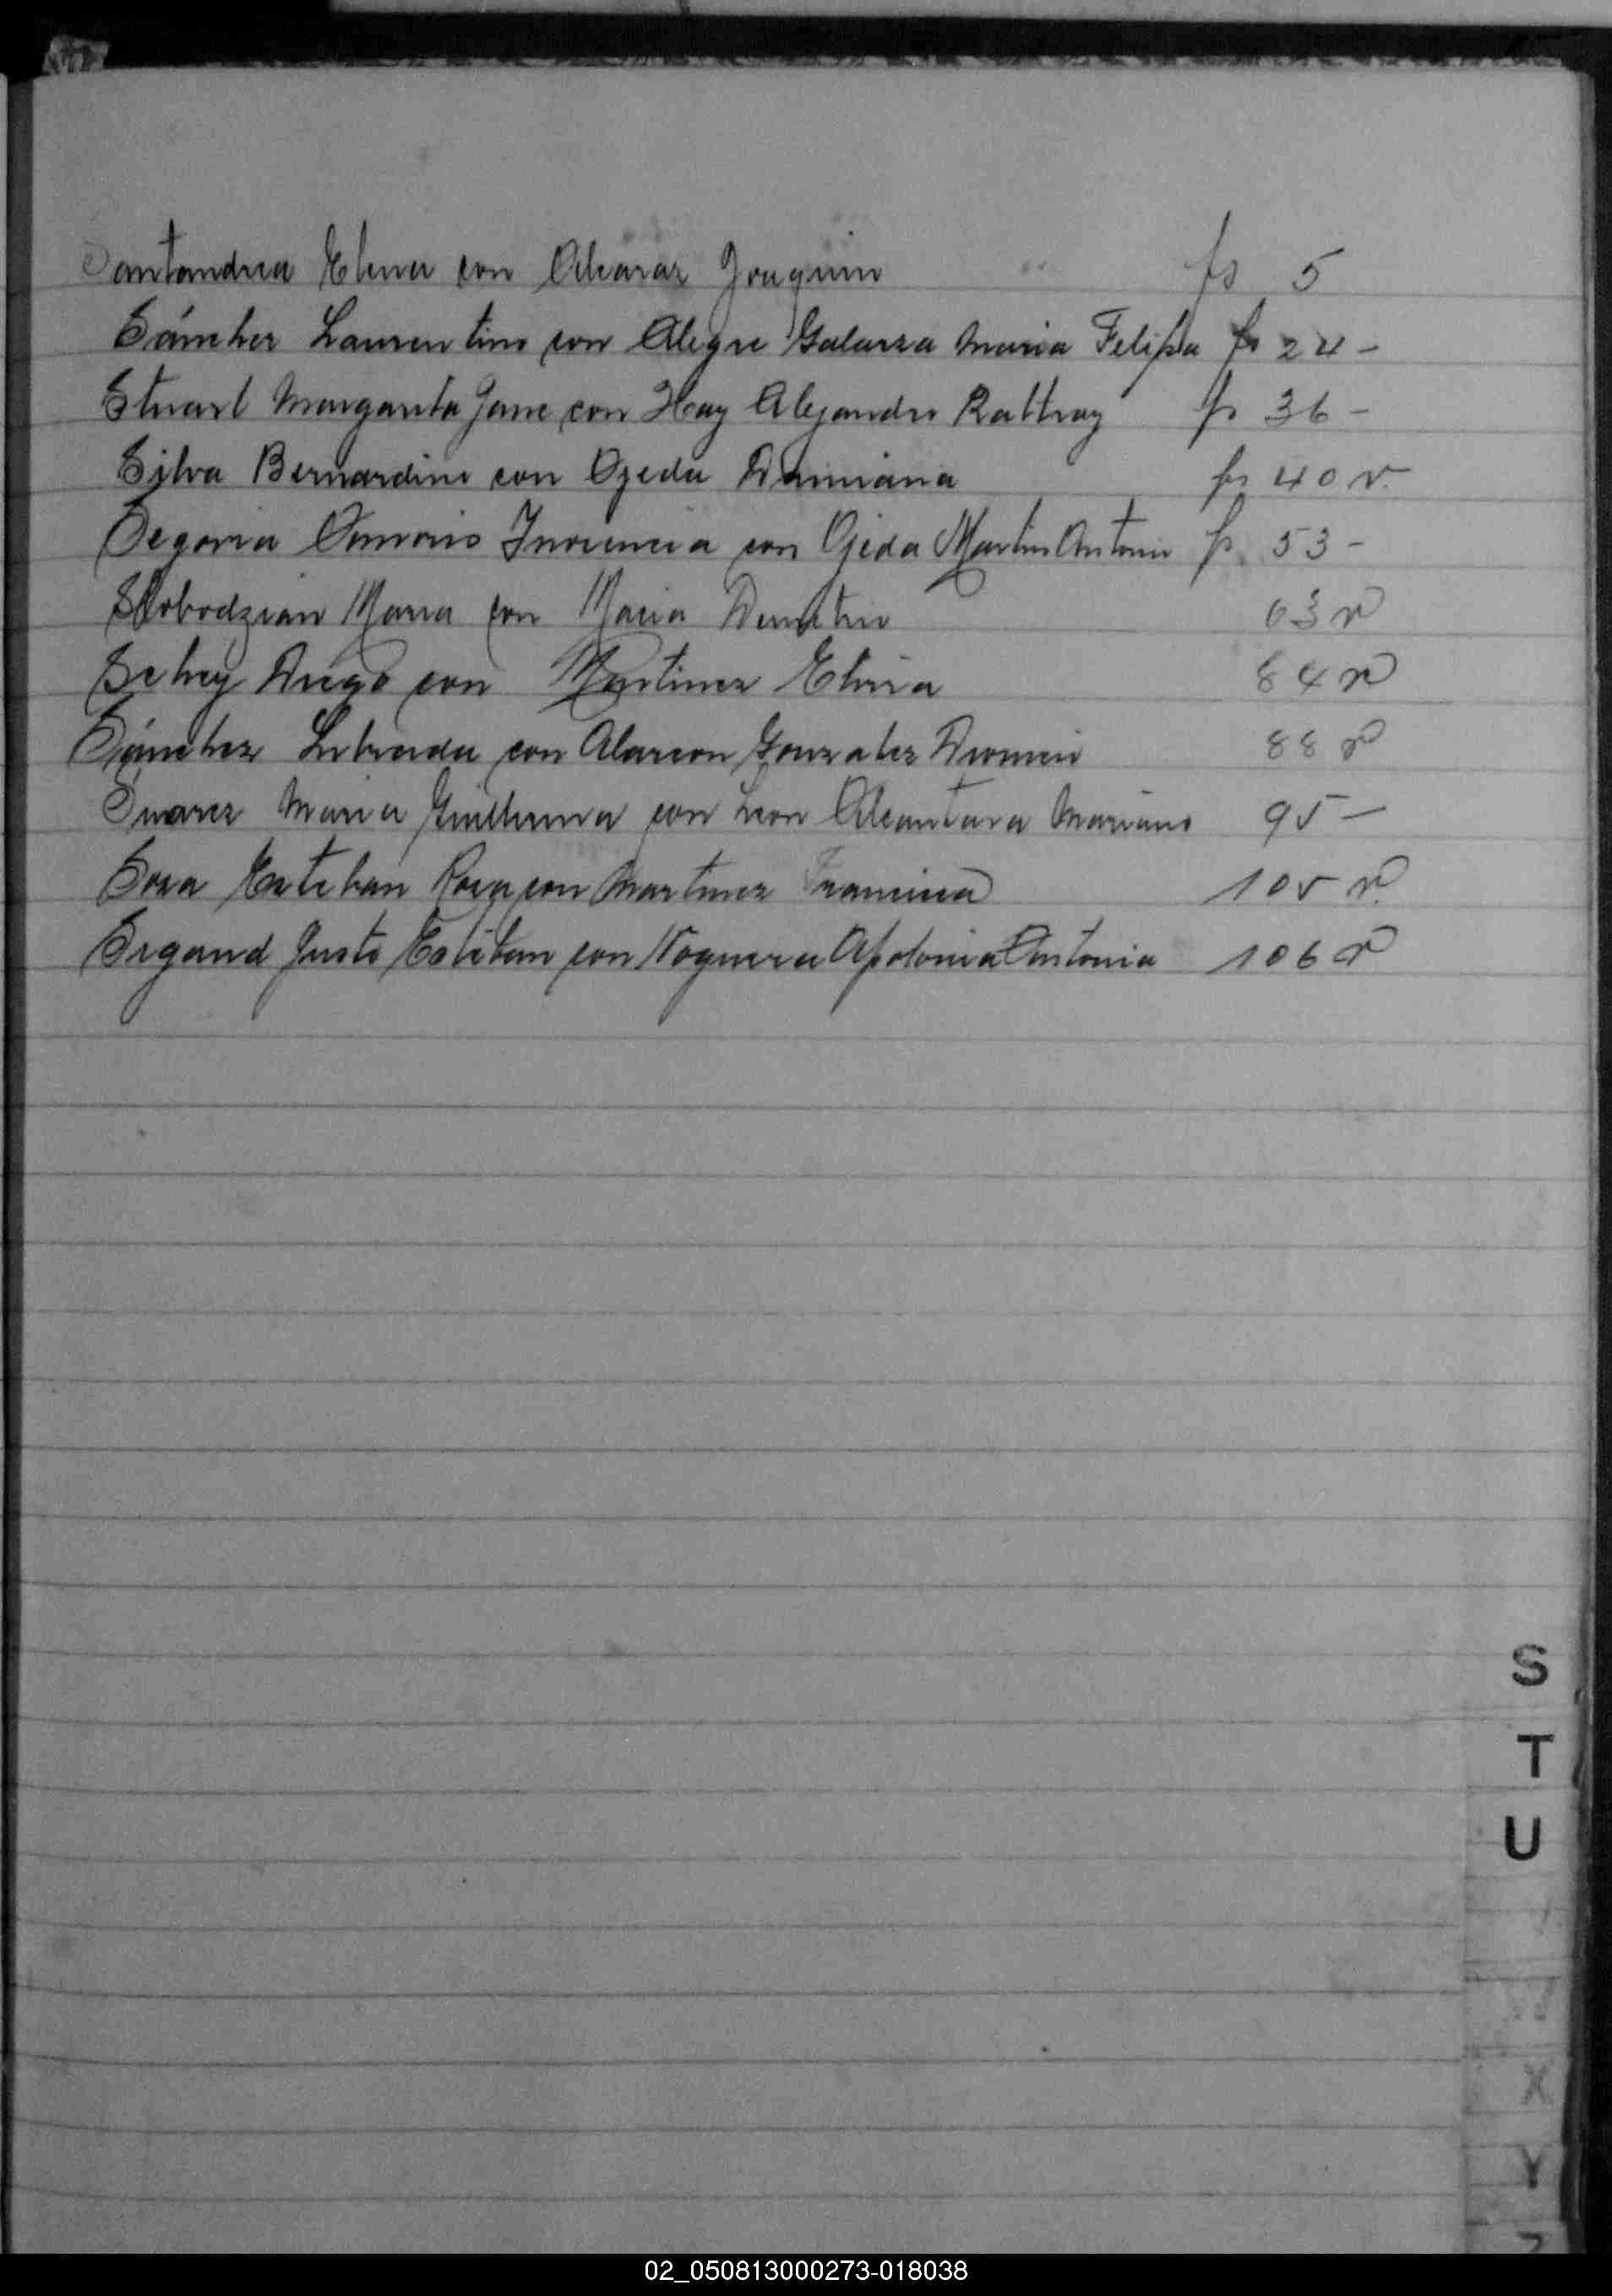 Santandrea Elena con Alcaraz Joaquin fs 5
Sánchez Laurentino con Alegre Galarza Maria Felipa fs 24 -
Stuart Margarita Jane con Hay Alejandro Rattray fs 36 -
Silva Bernardino con Ojeda Damiana fs 40 v.
Segovia Inocencia con Ojeda Martin Antonio fs 53 -
Slobodzian Maria con Macia Demetrio 63 v
Diego con Martinez Elvira 84 v
Sánchez Librada con Alarcon Gonzalez Dionicio 88 v
Suarez Maria Guillerma con Leon Alcantara Mariano 95 -
Sosa Esteban Roca con Martinez Francisca 105 v.
Sigaud Justo Esteban con Noguera Apolonia Antonia 106 v
S
T
U
X
Y
Z
02_050813000273-018038